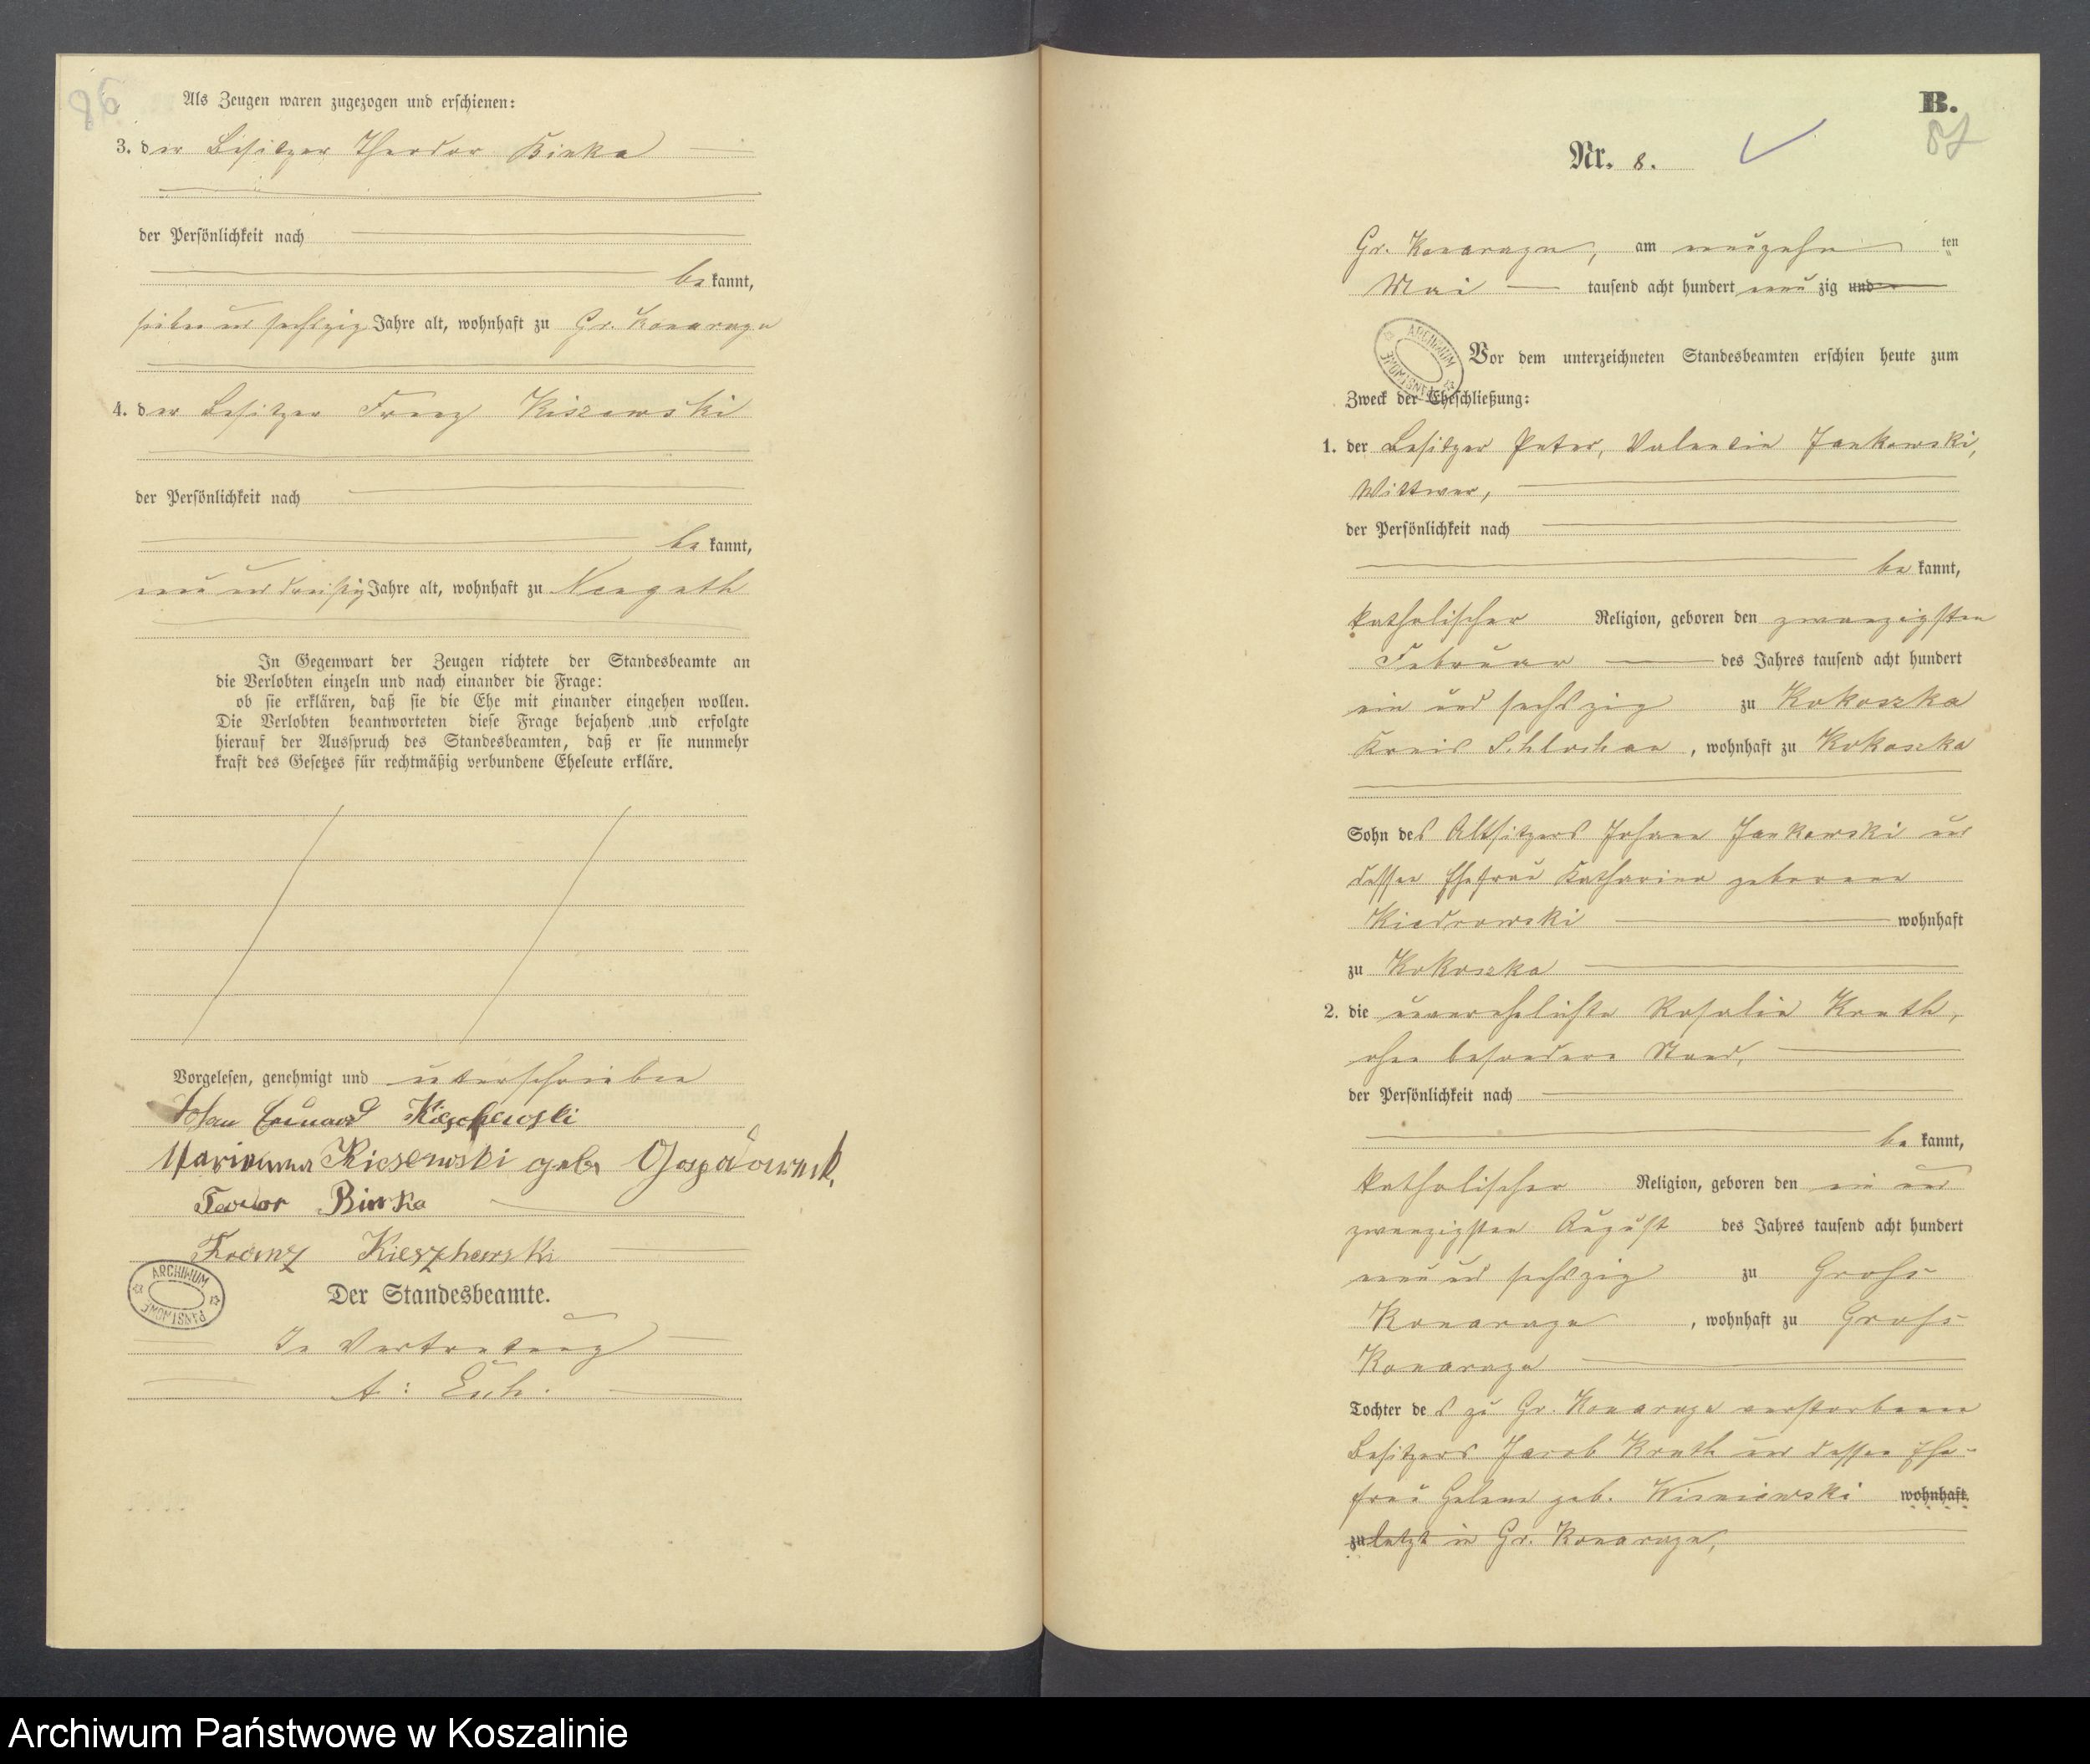 86
Als Zeugen waren zugezogen und erschienen:
3. der Besitzer Theodor Binka
der Persönlichkeit nach
be kannt,
sieben und sechszig Jahre alt, wohnhaft zu Gr. Konarczyn
4. der Besitzer Franz Kiszewski
der Persönlichkeit nach
be kannt,
neun und dreißig Jahre alt, wohnhaft zu Neuguth
In Gegenwart der Zeugen richtete der Standesbeamte an
die Verlobten einzeln und nach einander die Frage:
ob sie erklären, daß sie die Ehe mit einander eingehen wollen.
Die Verlobten beantworteten diese Frage bejahend und erfolgte
hierauf der Ausspruch des Standesbeamten, daß er sie nunmehr
kraft des Gesetzes für rechtmäßig verbundene Eheleute erkläre.
Vorgelesen, genehmigt und unterschrieben
Johan
Marianna Kiszewski geb.
Teodor Binka
Franz
Der Standesbeamte.
In Vertretung
A:
ARCHIWUM PAŃSTWOWE
B.
87
Nr. 8.
Gr. Konarczyn, am neunzehn ten
Mai tausend acht hundert neun zig und
ARCHIWUM PAŃSTWOWE
Vor dem unterzeichneten Standesbeamten erschien heute zum
Zweck der Eheschließung:
1. der Besitzer Peter, Valentin Jankowski,
Wittwer,
der Persönlichkeit nach
be kannt,
katholischer Religion, geboren den zwanzigsten
Februar des Jahres tausend acht hundert
ein und sechszig zu Kokoszka
Kreis Schlochau, wohnhaft zu Kokoszka
Sohn des Altsitzers Johann Jankowski und
dessen Ehefrau Katharina geborene
Kiedrowski wohnhaft
zu Kokoszka
2. die unverehelichte Rosalie Knuth,
ohne besonderen Stand,
der Persönlichkeit nach
be kannt,
katholischer Religion, geboren den ein und
zwanzigsten August des Jahres tausend acht hundert
neun und sechszig zu Groß
Konarczyn, wohnhaft zu Groß
Konarczyn
Tochter des zu Gr. Konarczyn verstorbenen
Besitzers Jacob Knuth und dessen Ehe-
frau Helene geb. Wisniewski wohnhaft
zuletzt in Gr. Konarczyn,
Archiwum Państwowe w Koszalinie